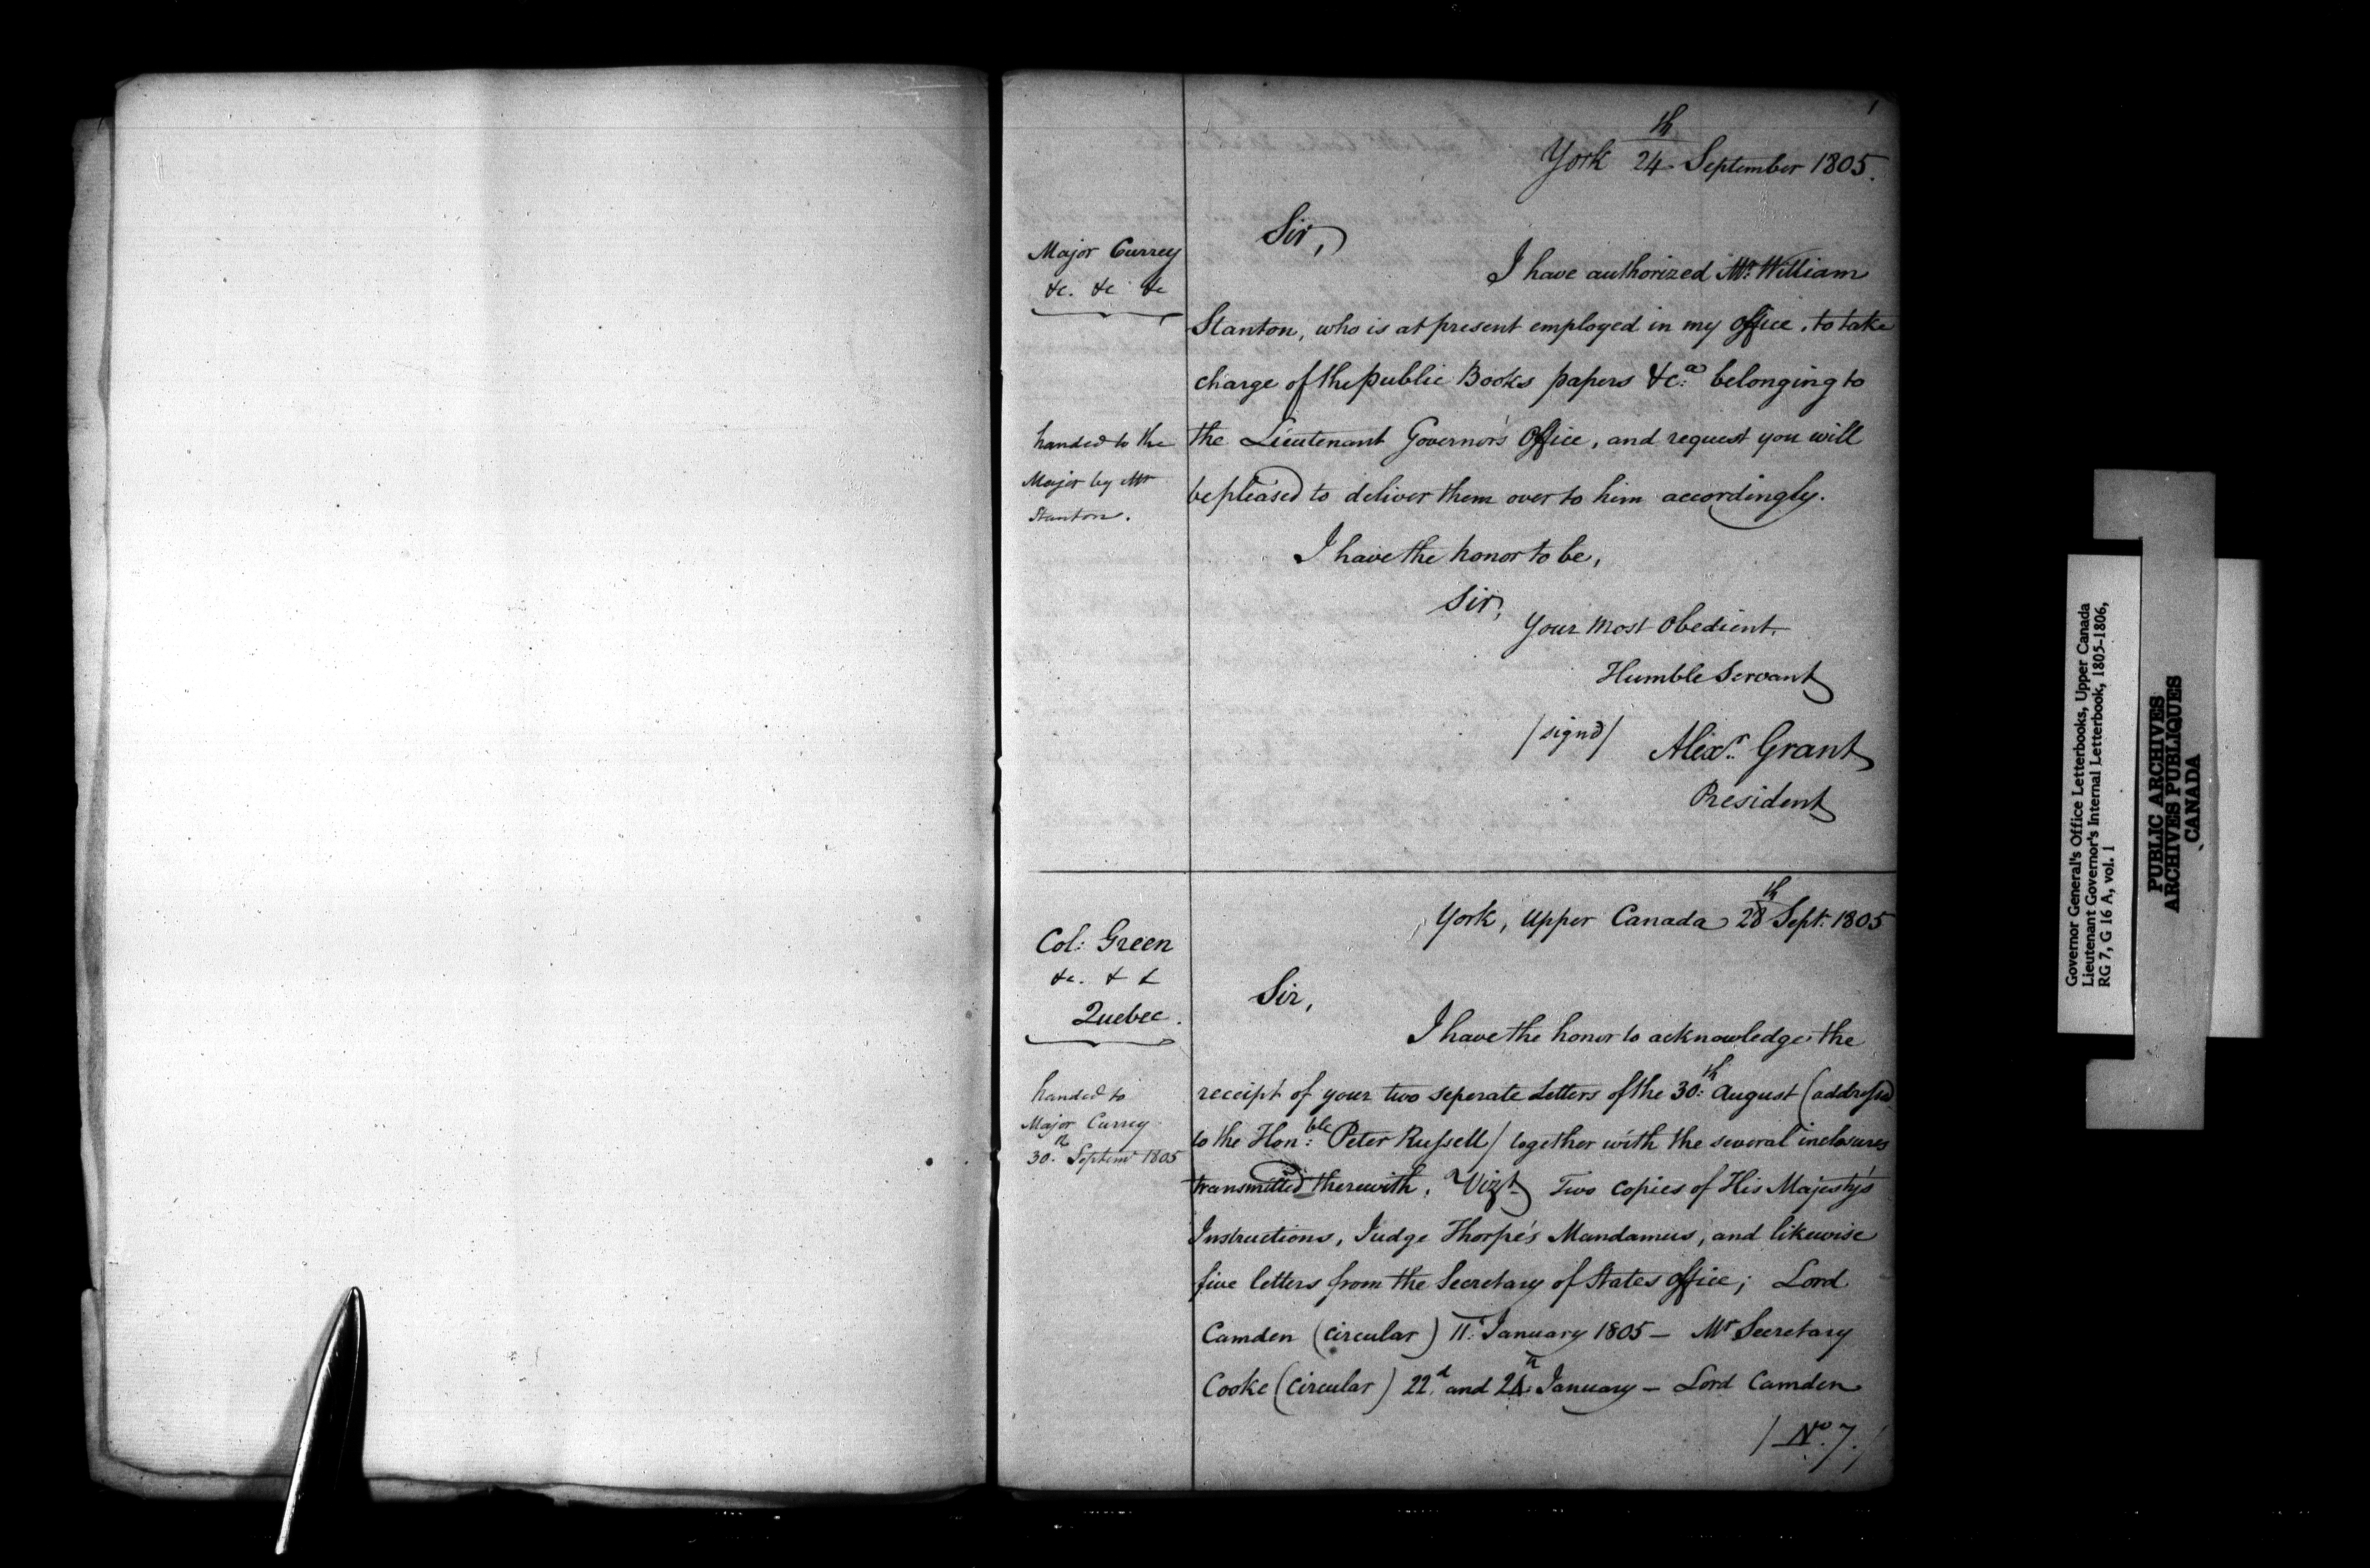 1
York 24th September 1805.
Major Currey
&c. &c &c
Sir,
I have authorized Mr. William
Stanton, who is at present employed in my Office, to take
charge of the public Books papers &c.a belonging to
handed to the
Major by Mr
Stanton.
the Lieutenant Governor's Office, and request you will
be pleased to deliver them over to him accordingly.
I have the honor to be,
Sir,
Your Most Obedient
Humble Servant
/signd/ Alexr. Grant
President
York, Upper Canada 28th Sept: 1805
Col: Green
&c. & &
Quebec.
Sir,
I have the honor to acknowledge the
handed to
Major Currey
30th Septemr 1805
receipt of your two seperate Letters of the 30:th August (addressed
to the Hon:ble Peter Russell/ together with the several inclosures
transmitted therewith, Vizt. Two Copies of His Majesty's
Instructions, Judge Thorpe's Mandamus, and likewise
five letters from the Secretary of States Office; Lord
Camden (circular) 11: January 1805 — Mr Secretary
Cooke (circular) 22d and 24th January — Lord Camden
/No. 7./
Governor General's Office Letterbooks, Upper Canada
Lieutenant Governor's Internal Letterbook, 1805-1806,
RG 7, G 16 A, vol. 1
PUBLIC ARCHIVES
ARCHIVES PUBLIQUES
CANADA